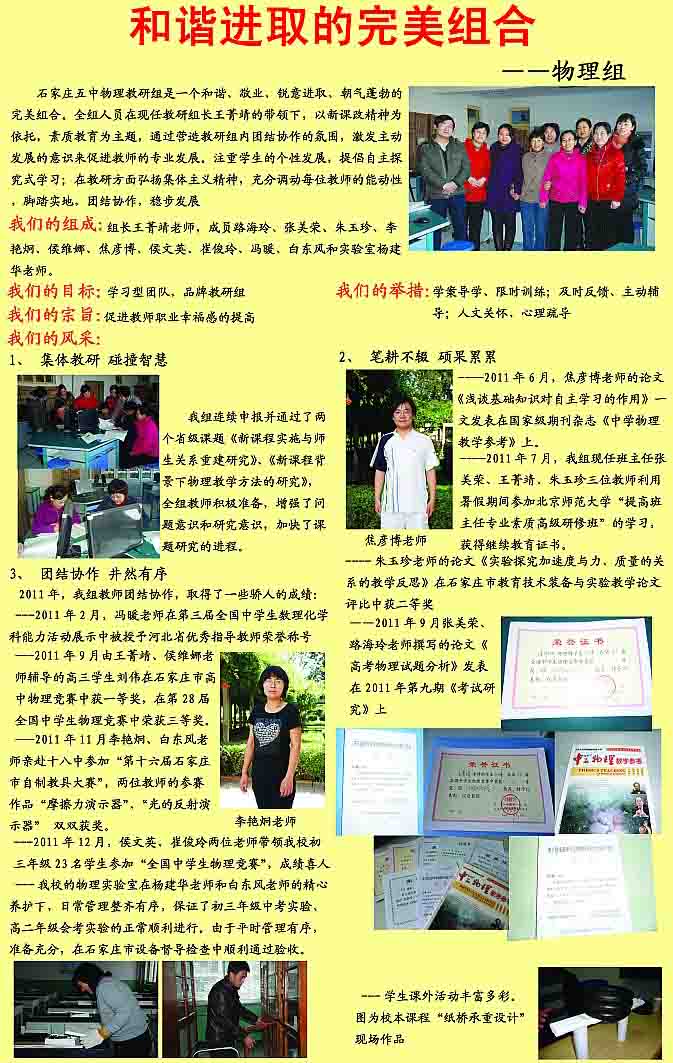 和谐进取的完美组合
——物理组
石家庄五中物理教研组是一个和谐、敬业、锐意进取、朝气蓬勃的
完美组合。全组人员在现任教研组长王菁靖的带领下，以新课改精神为
依托，素质教育为主题，通过营造教研组内团结协作的氛围，激发主动
发展的意识来促进教师的专业发展。注重学生的个性发展，提倡自主探
究式学习；在教研方面弘扬集体主义精神，充分调动每位教师的能动性
，脚踏实地，团结协作，稳步发展
我们的组成：组长王菁靖老师，成员路海玲、张美荣、朱玉珍、李
艳炯、侯维娜、焦彦博、侯文英、崔俊玲、冯暖、白东风和实验室杨建
华老师。
我们的目标：学习型团队，品牌教研组
我们的宗旨：促进教师职业幸福感的提高
我们的举措：学案导学、限时训练；及时反馈、主动辅
导；人文关怀，心理疏导
我们的风采：
1、 集体教研 碰撞智慧
我组连续申报并通过了两
个省级课题《新课程实施与师
生关系重建研究》、《新课程背
景下物理教学方法的研究》，
全组教师积极准备，增强了问
题意识和研究意识，加快了课
题研究的进程。
2、 笔耕不辍 硕果累累
----2011 年 6 月，焦彦博老师的论文
《浅谈基础知识对自主学习的作用》一
文发表在国家级期刊杂志《中学物理
教学参考》上。
----2011 年 7 月，我组现任班主任张
美荣、王菁靖、朱玉珍三位教师利用
暑假期间参加北京师范大学“提高班
主任专业素质高级研修班”的学习，
获得继续教育证书。
焦彦博老师
---- 朱玉珍老师的论文《实验探究加速度与力、质量的关
系的教学反思》在石家庄市教育技术装备与实验教学论文
评比中获二等奖
——2011 年 9 月张美荣、
路海玲老师撰写的论文《
高考物理试题分析》发表
在 2011 年第九期《考试研
究》上
荣誉证书
荣誉证书
中学物理
教学参考
3、 团结协作 井然有序
2011 年，我组教师团结协作，取得了一些骄人的成绩：
---2011 年 2 月，冯暖老师在第三届全国中学生数理化学
科能力活动展示中被授予河北省优秀指导教师荣誉称号
---2011 年 9 月由王菁靖、侯维娜老
师辅导的高三学生刘伟在石家庄市高
中物理竞赛中获一等奖，在第 28 届
全国中学生物理竞赛中荣获三等奖。
---2011 年 11 月李艳炯、白东风老
师亲赴十八中参加“第十六届石家庄
市自制教具大赛”，两位教师的参赛
作品“摩擦力演示器”、“光的反射演
示器” 双双获奖。
李艳炯老师
---2011 年 12 月，侯文英、崔俊玲两位老师带领我校初
三年级 23 名学生参加“全国中学生物理竞赛”，成绩喜人
--- 我校的物理实验室在杨建华老师和白东风老师的精心
养护下，日常管理整齐有序，保证了初三年级中考实验、
高二年级会考实验的正常顺利进行。由于平时管理有序，
准备充分，在石家庄市设备督导检查中顺利通过验收。
--- 学生课外活动丰富多彩。
图为校本课程“纸桥承重设计”
现场作品